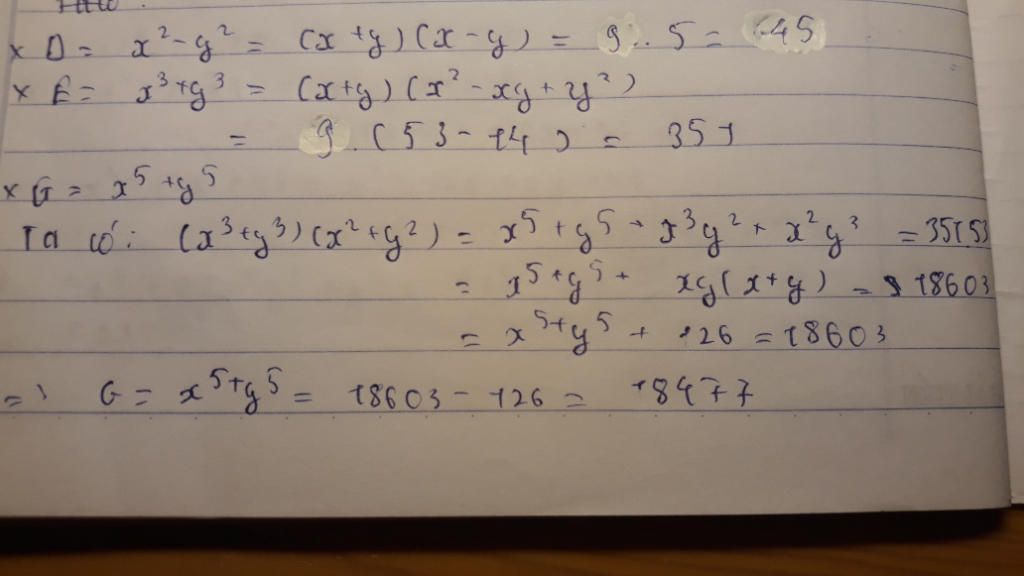 x D = x² - y² = (x + y) (x - y) = 9 . 5 = 45
x E = x³ + y³ = (x + y) (x² - xy + y²)
= 9 . (53 - 14) = 351
x G = x⁵ + y⁵
Ta có: (x³ + y³) (x² + y²) = x⁵ + y⁵ + x³y² + x²y³ = 351 53
= x⁵ + y⁵ + xy(x + y) = 18603
= x⁵ + y⁵ + 126 = 18603
=> G = x⁵ + y⁵ = 18603 - 126 = 18477